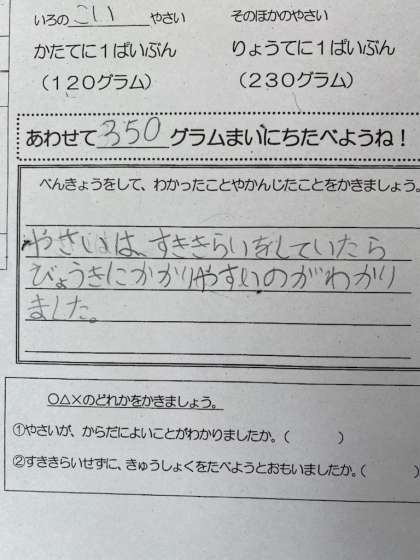 いろの こい やさい　そのほかのやさい
かたてに１ぱいぶん　りょうてに１ぱいぶん
（１２０グラム）　（２３０グラム）
あわせて350グラムまいにちたべようね！
べんきょうをして、わかったことやかんじたことをかきましょう。
やさいは、すききらいをしていたら
びょうきにかかりやすいのがわかり
ました。
○△×のどれかをかきましょう。
①やさいが、からだによいことがわかりましたか。（　　）
②すききらいせずに、きゅうしょくをたべようとおもいましたか。（　　）